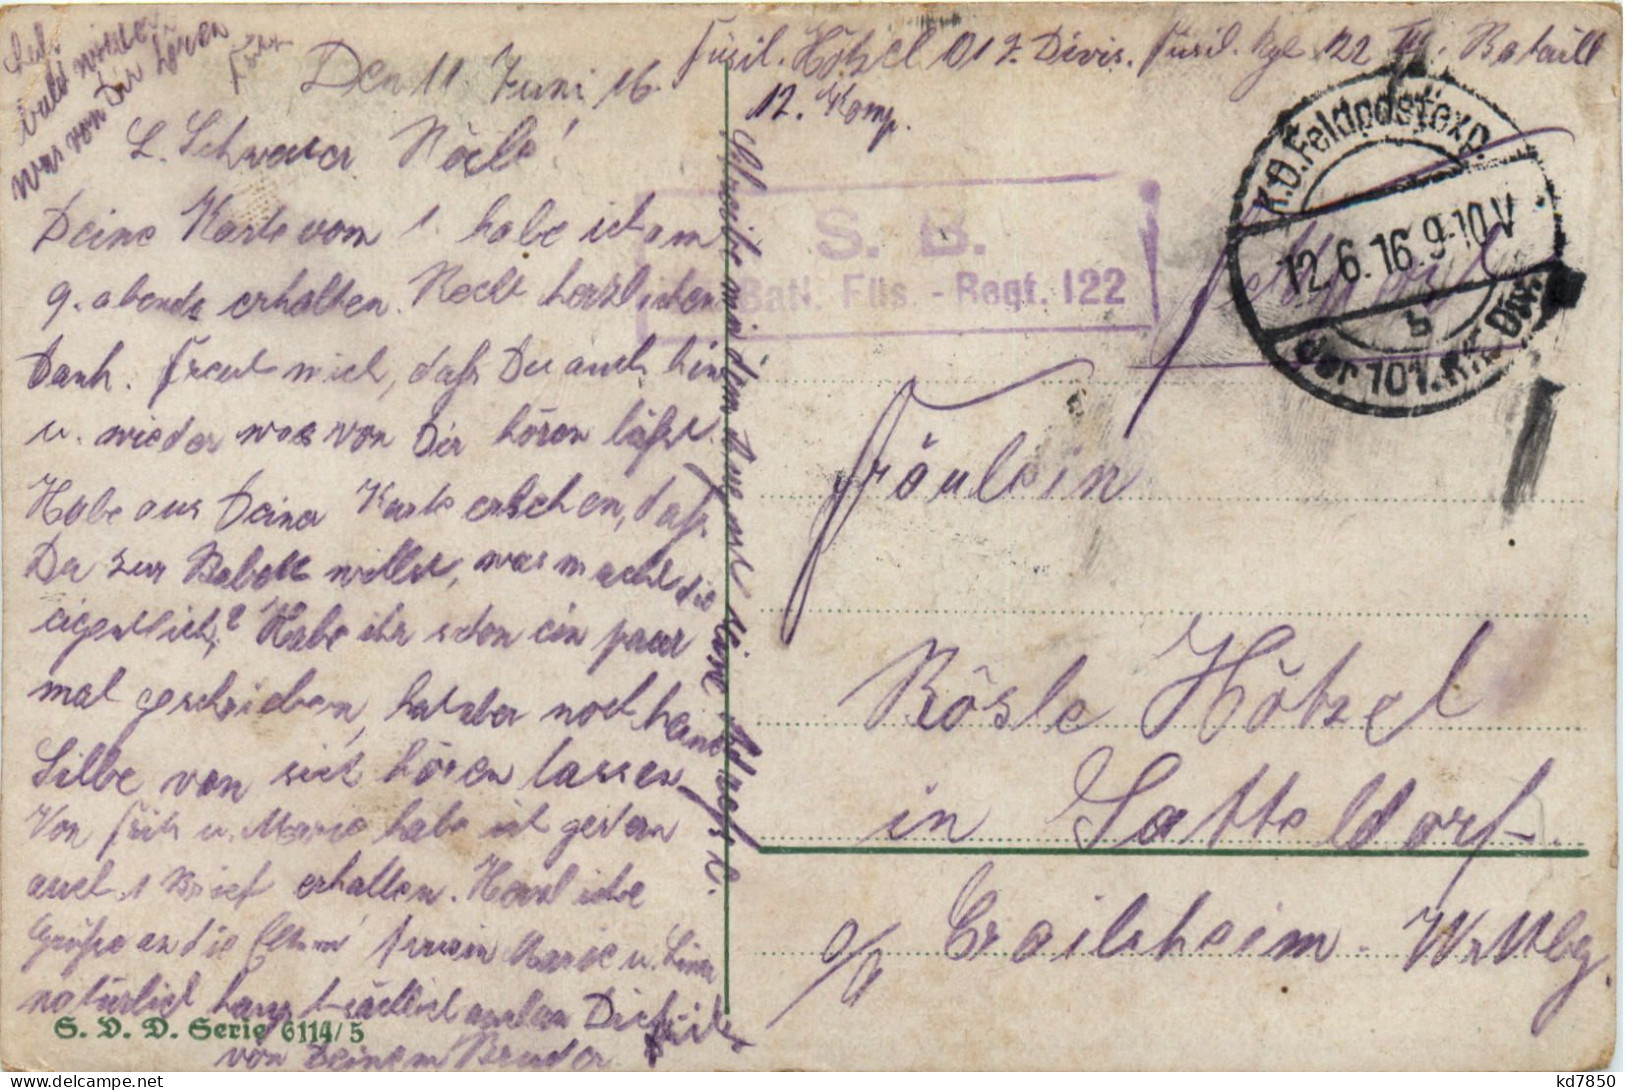 Füsil. Hötzel 101. Divis. Füsil. Rgt 122 III. Bataill
12. Komp.
Den 11. Juni 16.
L. Schwester Rösle!
Deine Karte vom 1. habe ich am
9. abends erhalten. Recht herzlichen
Dank. Freut mich, daß Du auch hin
u. wieder was von Dir hören läßt.
Habe aus Deiner Karte ersehen, daß
Du zur Babett willst, was macht die
eigentlich? Habe ihr schon ein paar
mal geschrieben, hat aber noch keine
Silbe von sich hören lassen.
Von Fritz u. Marie habe ich gestern
auch 1 Brief erhalten. Herzliche
Grüße an die Eltern Marie u. Lina
natürlich Dich
von Deinem Bruder
Laß bald wieder
was von Dir hören
Schreibe mir deine Adresse.
S. B.
Batl. Füs.-Regt. 122
K.D. Feldpostexp.
12.6.16.9-10V
b
der 101. Inf. Div.
Feldpost
Fräulein
Rösle Hötzel
in Satteldorf
o/a Crailsheim. Württbg.
S. V. D. Serie 6114/5
kd7850